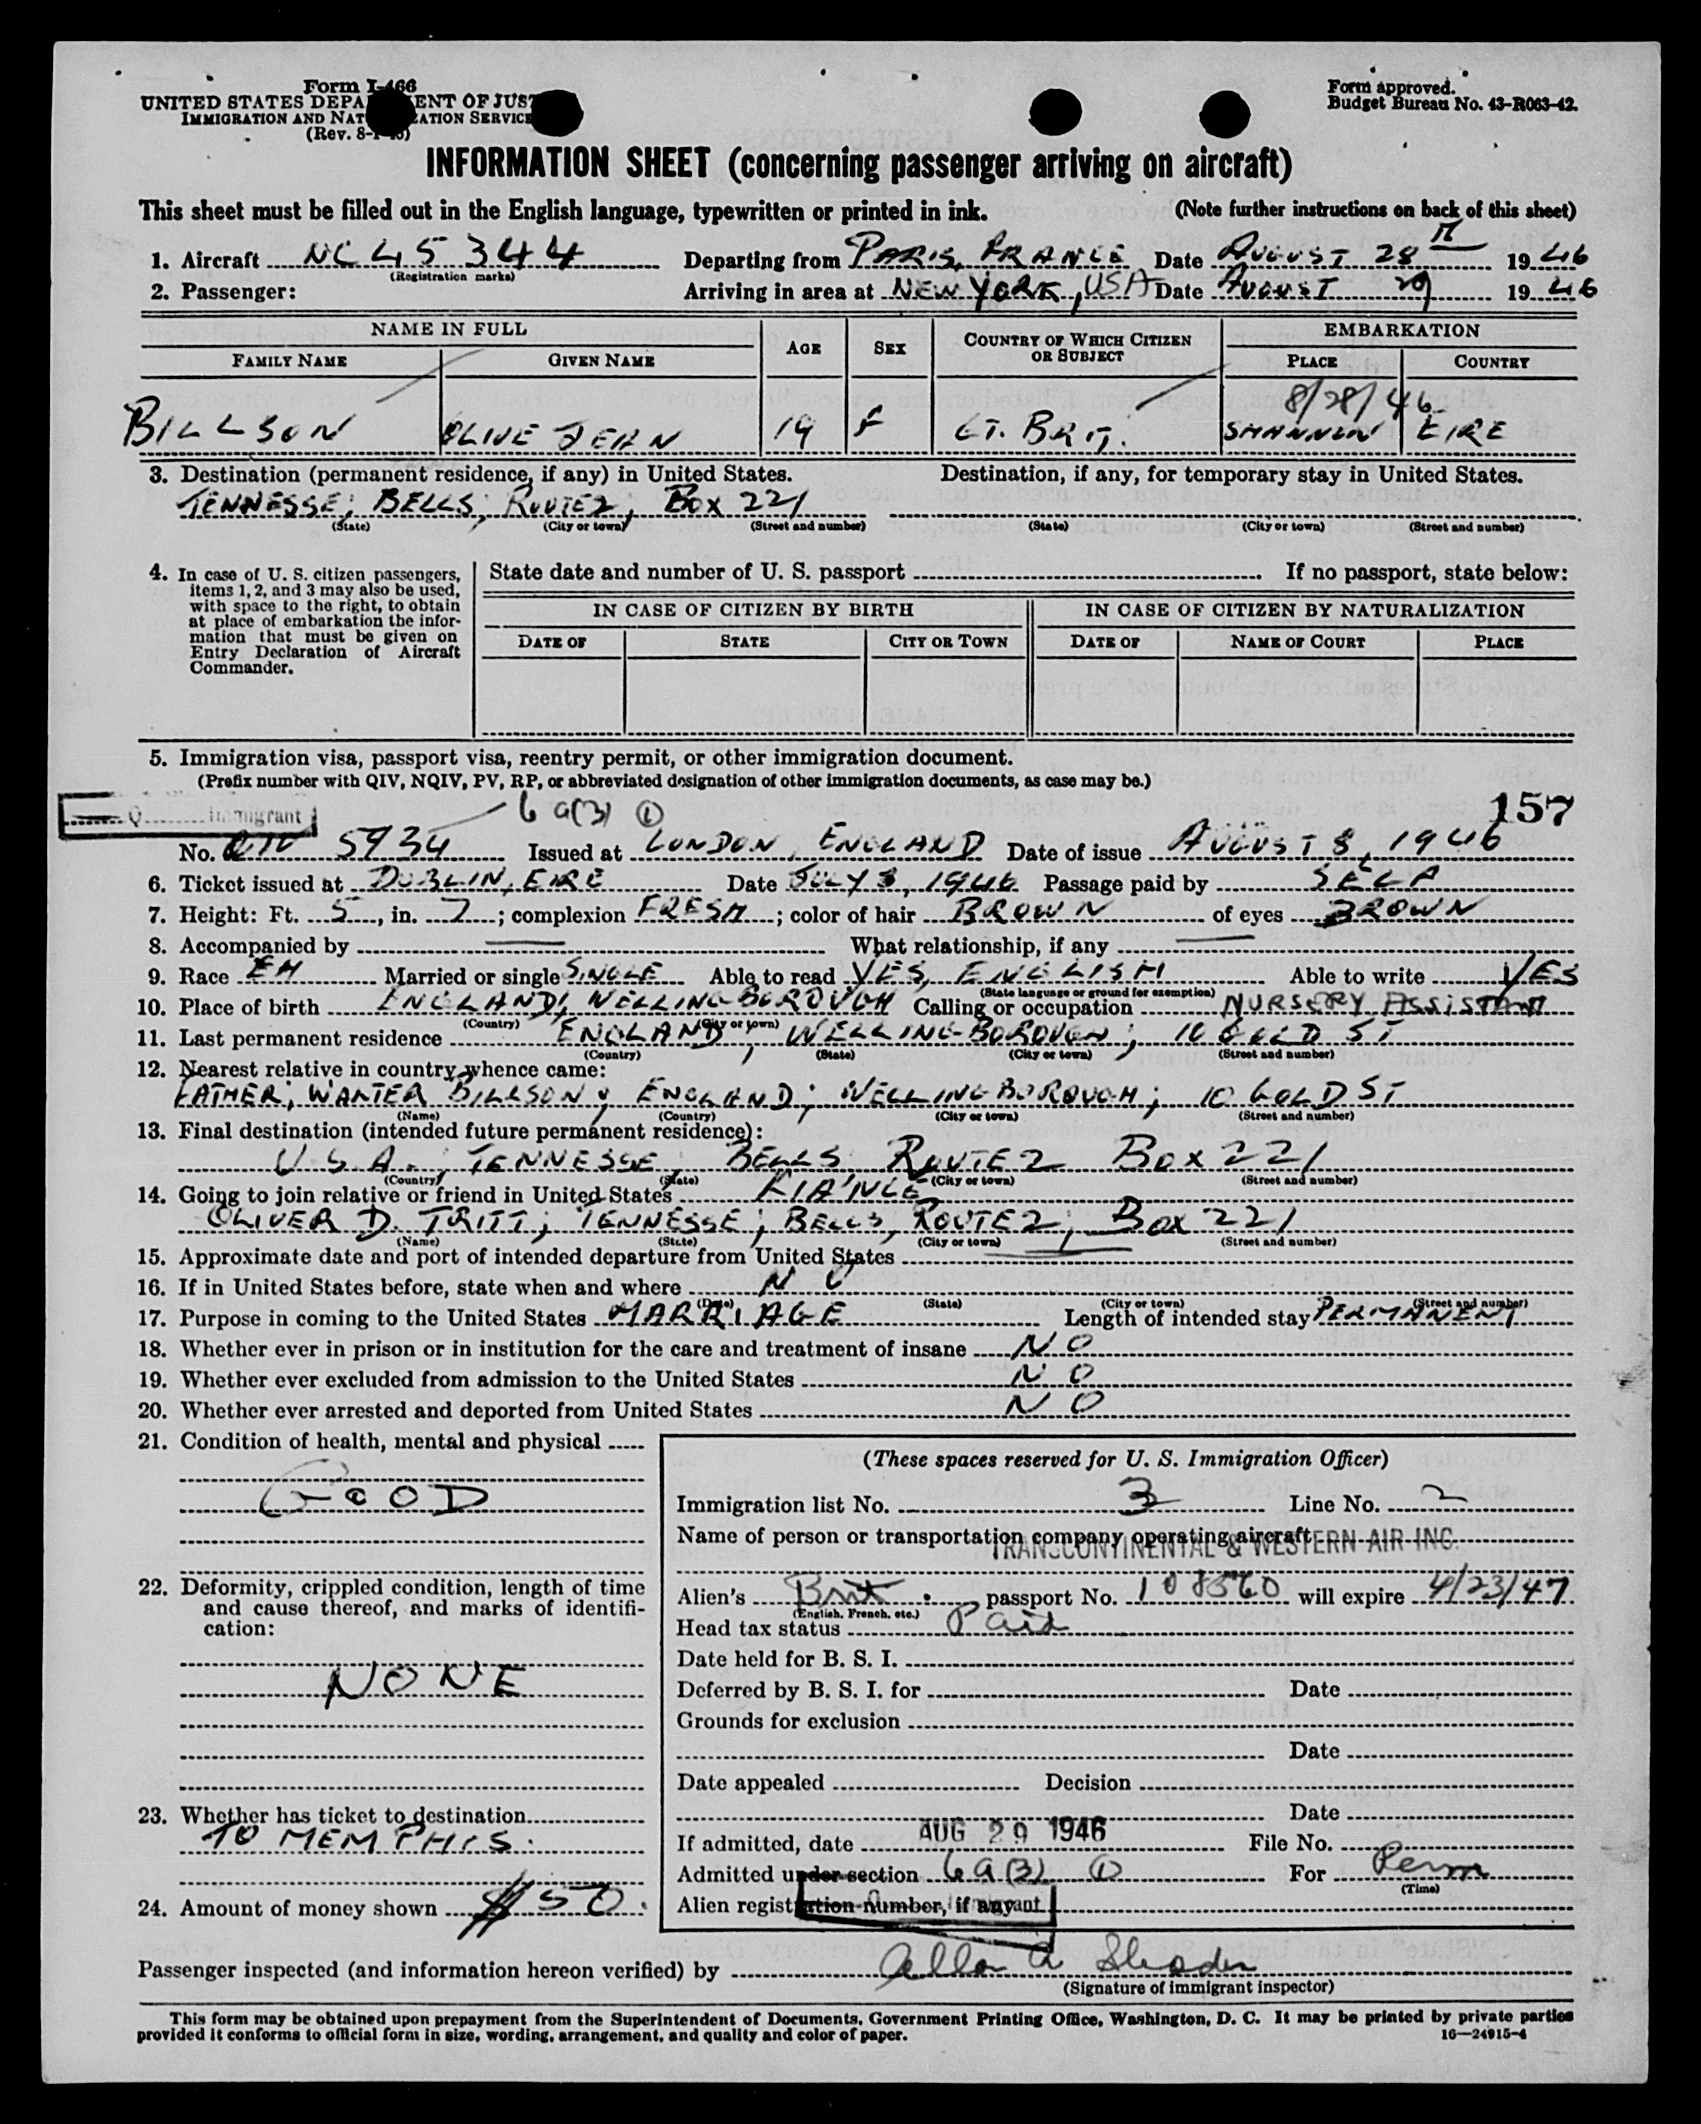 Form I-466
UNITED STATES DEPARTMENT OF JUSTICE
IMMIGRATION AND NATURALIZATION SERVICE
(Rev. 8-1-45)
Form approved.
Budget Bureau No. 43-R063-42.
INFORMATION SHEET (concerning passenger arriving on aircraft)
This sheet must be filled out in the English language, typewritten or printed in ink. (Note further instructions on back of this sheet)
1. Aircraft NC 45344 Departing from PARIS, FRANCE Date AUGUST 28 TH 1946
(Registration marks)
2. Passenger: Arriving in area at NEW YORK, USA Date AUGUST 29 1946
NAME IN FULL AGE SEX COUNTRY OF WHICH CITIZEN OR SUBJECT EMBARKATION
FAMILY NAME GIVEN NAME PLACE COUNTRY
8/28/46
BILLSON OLIVE JEAN 19 F GT. BRIT. SHANNON EIRE
3. Destination (permanent residence, if any) in United States. Destination, if any, for temporary stay in United States.
TENNESSE; BELLS; ROUTE 2, BOX 221
(State) (City or town) (Street and number) (State) (City or town) (Street and number)
4. In case of U. S. citizen passengers, items 1, 2, and 3 may also be used, with space to the right, to obtain at place of embarkation the information that must be given on Entry Declaration of Aircraft Commander.
State date and number of U. S. passport If no passport, state below:
IN CASE OF CITIZEN BY BIRTH IN CASE OF CITIZEN BY NATURALIZATION
DATE OF STATE CITY OR TOWN DATE OF NAME OF COURT PLACE
5. Immigration visa, passport visa, reentry permit, or other immigration document.
(Prefix number with QIV, NQIV, PV, RP, or abbreviated designation of other immigration documents, as case may be.)
Q Immigrant 6 a(3) ① 157
No. QIV 5934 Issued at LONDON, ENGLAND Date of issue AUGUST 8, 1946
6. Ticket issued at DUBLIN, EIRE Date JULY 3, 1946 Passage paid by SELF
7. Height: Ft. 5, in. 7; complexion FRESH; color of hair BROWN of eyes BROWN
8. Accompanied by What relationship, if any
9. Race Married or single SINGLE Able to read YES, ENGLISH Able to write YES
(State language or ground for exemption)
10. Place of birth ENGLAND, WELLINGBOROUGH Calling or occupation NURSERY ASSISTANT
(Country) (City or town)
11. Last permanent residence ENGLAND, WELLINGBOROUGH; 10 GOLD ST
(Country) (State) (City or town) (Street and number)
12. Nearest relative in country whence came:
FATHER; WALTER BILLSON; ENGLAND; WELLINGBOROUGH; 10 GOLD ST
(Name) (Country) (City or town) (Street and number)
13. Final destination (intended future permanent residence):
U.S.A., TENNESSE, BELLS, ROUTE 2 BOX 221
(Country) (State) (City or town) (Street and number)
14. Going to join relative or friend in United States FIANCE
OLIVER D. TRITT; TENNESSE; BELLS, ROUTE 2; BOX 221
(Name) (State) (City or town) (Street and number)
15. Approximate date and port of intended departure from United States
16. If in United States before, state when and where NO
(Date) (State) (City or town) (Street and number)
17. Purpose in coming to the United States MARRIAGE Length of intended stay PERMANENT
18. Whether ever in prison or in institution for the care and treatment of insane NO
19. Whether ever excluded from admission to the United States NO
20. Whether ever arrested and deported from United States NO
21. Condition of health, mental and physical
GOOD
22. Deformity, crippled condition, length of time and cause thereof, and marks of identification:
NONE
23. Whether has ticket to destination
TO MEMPHIS.
24. Amount of money shown $50.
(These spaces reserved for U. S. Immigration Officer)
Immigration list No. 3 Line No. 2
Name of person or transportation company operating aircraft
TRANSCONTINENTAL & WESTERN AIR INC.
Alien's Brit. passport No. 108560 will expire 4/23/47
(English, French, etc.)
Head tax status Paid
Date held for B. S. I.
Deferred by B. S. I. for Date
Grounds for exclusion
Date
Date appealed Decision
Date
If admitted, date AUG 29 1946 File No.
Admitted under section 6a(3) ① For Perm
(Time)
Alien registration number, if any
Passenger inspected (and information hereon verified) by
(Signature of immigrant inspector)
This form may be obtained upon prepayment from the Superintendent of Documents, Government Printing Office, Washington, D. C. It may be printed by private parties
provided it conforms to official form in size, wording, arrangement, and quality and color of paper. 16—24915-4